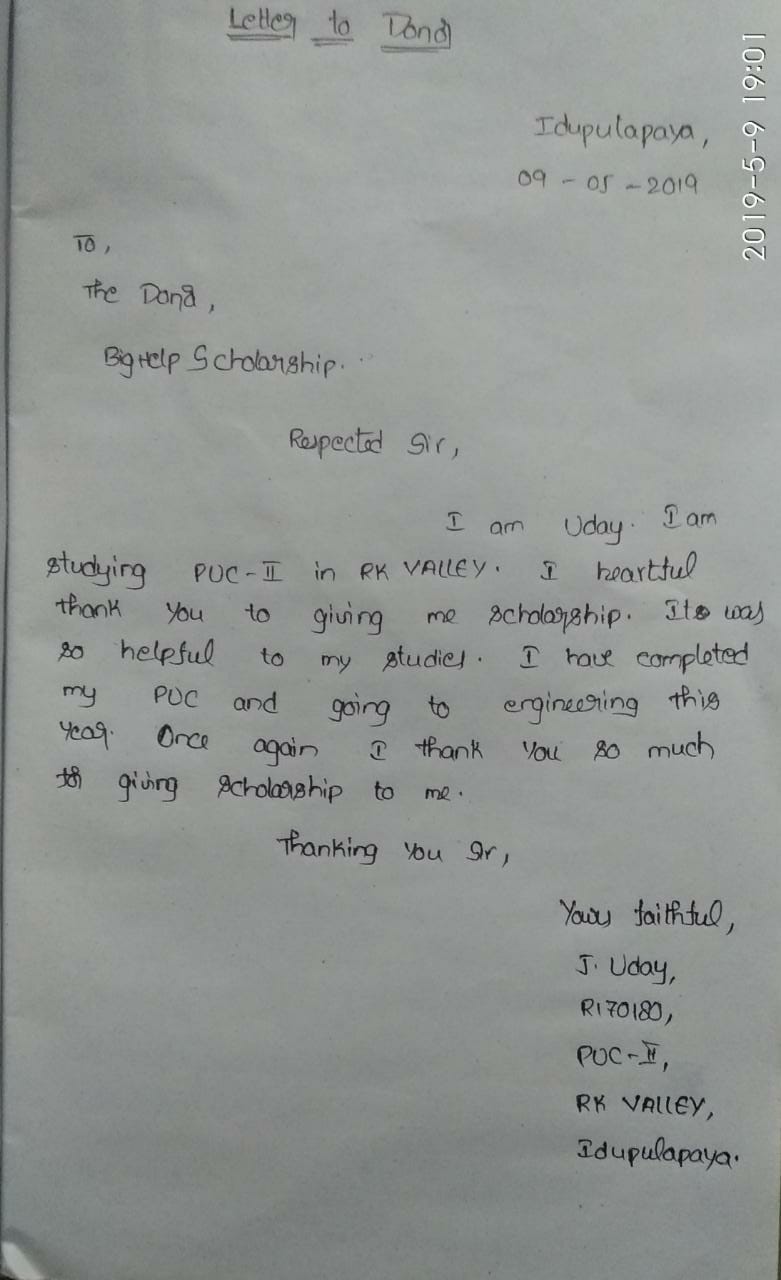 Letter to Dono
Idupulapaya,
09-05-2019
2019-5-9 19:01
To,
The Dona,
BigHelp Scholarship.
Respected Sir,
I am Uday. I am
studying PUC-II in RK VALLEY. I heartful
thank you to giving me scholarship. Its was
so helpful to my studies. I have completed
my PUC and going to engineering this
year. Once again I thank you so much
giving scholarship to me.
Thanking You Sir,
Yours faithful,
J. Uday,
R170180,
PUC-II,
RK VALLEY,
Idupulapaya.